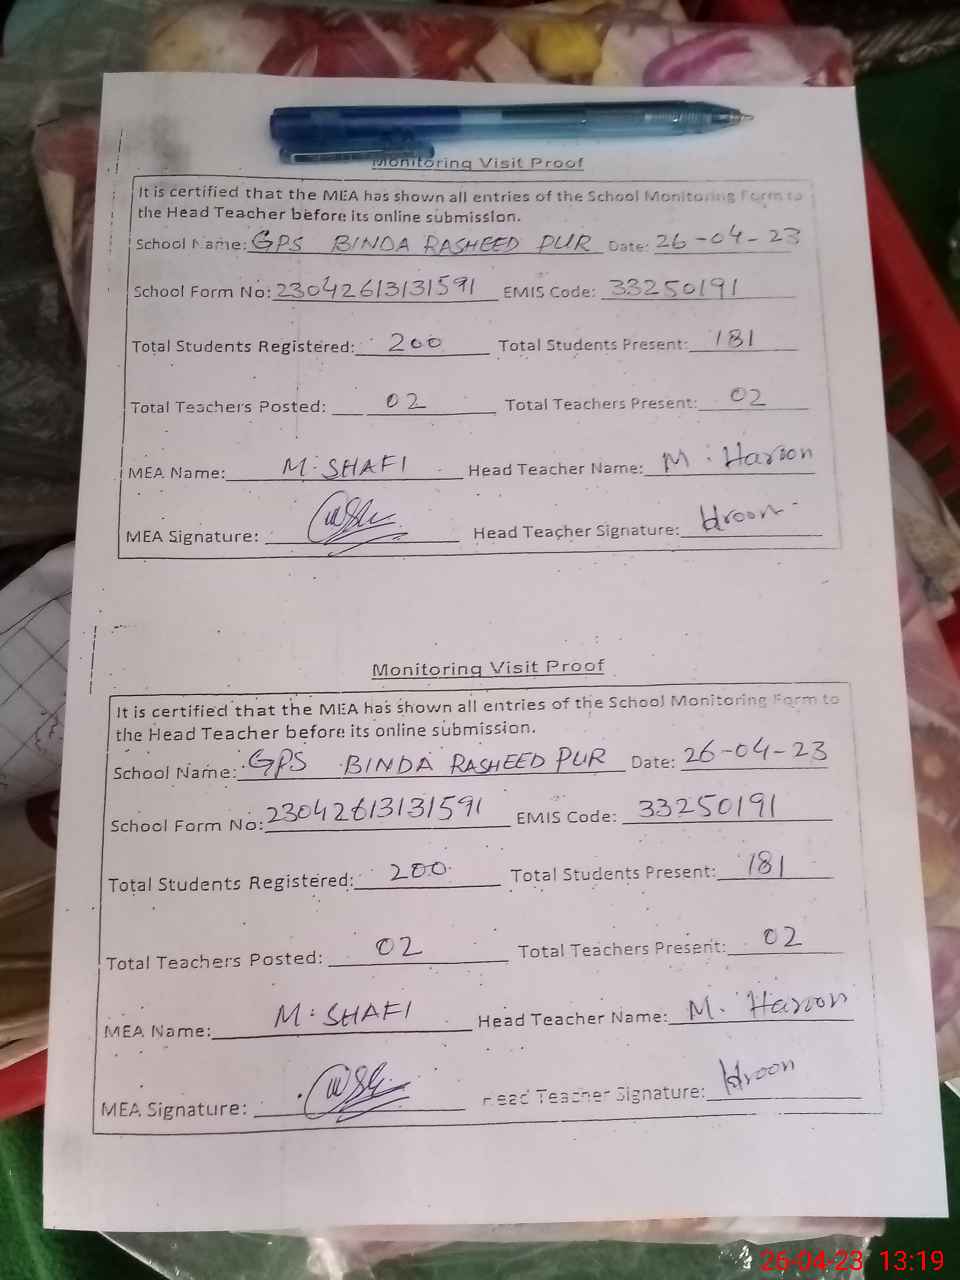 Monitoring Visit Proof
It is certified that the MEA has shown all entries of the School Monitoring Form to
the Head Teacher before its online submission.
School Name: GPS BINDA RASHEED PUR Date: 26-04-23
School Form No: 23042613131591 EMIS Code: 33250191
Total Students Registered: 200 Total Students Present: 181
Total Teachers Posted: 02 Total Teachers Present: 02
MEA Name: M. SHAFI Head Teacher Name: M. Haroon
MEA Signature: Head Teacher Signature: Hroon
Monitoring Visit Proof
It is certified that the MEA has shown all entries of the School Monitoring Form to
the Head Teacher before its online submission.
School Name: GPS BINDA RASHEED PUR Date: 26-04-23
School Form No: 23042613131591 EMIS Code: 33250191
Total Students Registered: 200 Total Students Present: 181
Total Teachers Posted: 02 Total Teachers Present: 02
MEA Name: M. SHAFI Head Teacher Name: M. Haroon
MEA Signature: Head Teacher Signature: Hroon
26-04-23 13:19